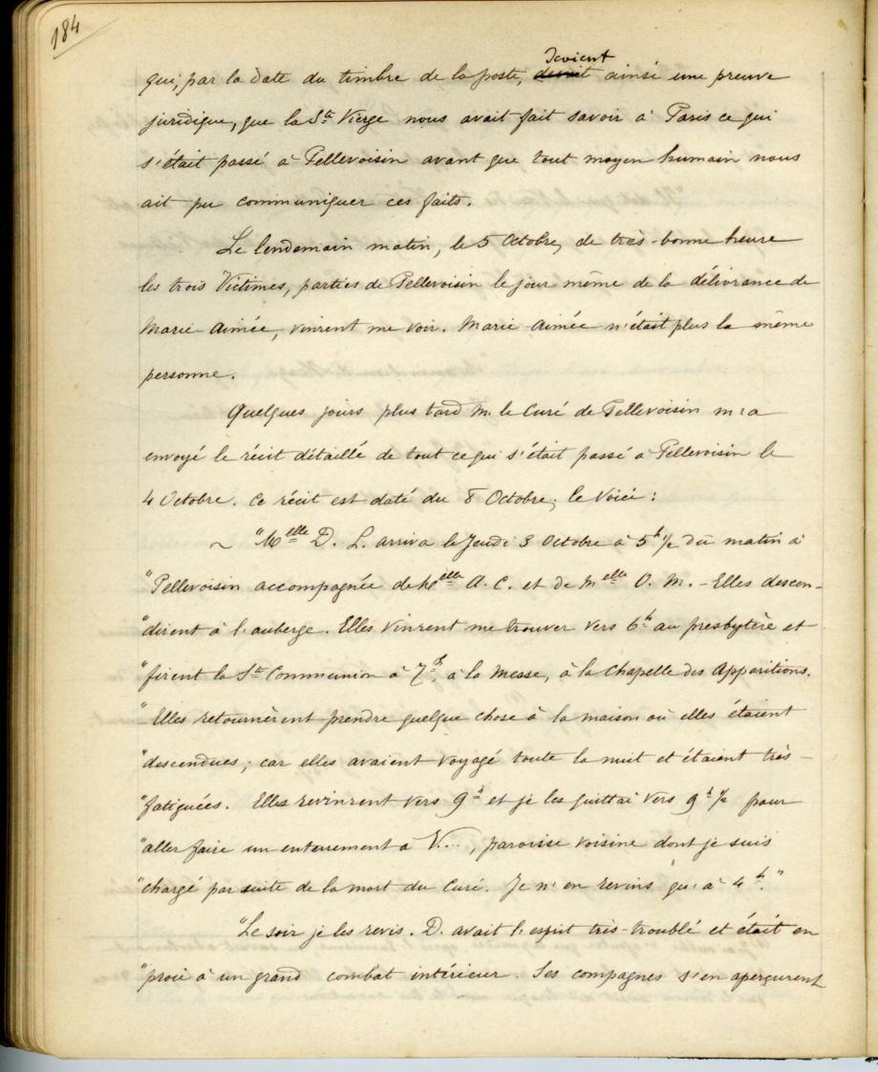 184
qui, par la date du timbre de la poste, devient ainsi une preuve
juridique, que la Ste Vierge nous avait fait savoir à Paris ce qui
s'était passé à Pellevoisin avant que tout moyen humain nous
ait pu communiquer ces faits.
Le lendemain matin, le 5 Octobre, de très-bonne heure
les trois Victimes, parties de Pellevoisin le jour même de la délivrance de
Marie-Aimée, vinrent me voir. Marie Aimée n'était plus la même
personne.
Quelques jours plus tard M. le Curé de Pellevoisin m'a
envoyé le récit détaillé de tout ce qui s'était passé à Pellevoisin le
4 Octobre. Ce récit est daté du 8 Octobre, le Voici :
~ "Melle D. L. arriva le Jeudi 3 Octobre à 5h 1/2 du matin à
"Pellevoisin accompagnée de Melle A. C. et de Melle O. M. - Elles descen-
"dirent à l'auberge. Elles vinrent me trouver vers 6h au presbytère et
"firent la Ste Communion à 7h, à la Messe, à la Chapelle des Apparitions.
"Elles retournèrent prendre quelque chose à la maison où elles étaient
"descendues, car elles avaient voyagé toute la nuit et étaient très-
"fatiguées. Elles revinrent vers 9h et je les quittai vers 9h 1/2 pour
"aller faire un enterrement à V..., paroisse voisine dont je suis
"chargé par suite de la mort du Curé. Je n'en revins qu'à 4h."
"Le soir je les revis. D. avait l'esprit très-troublé et était en
"proie à un grand combat intérieur. Ses compagnes s'en aperçurent